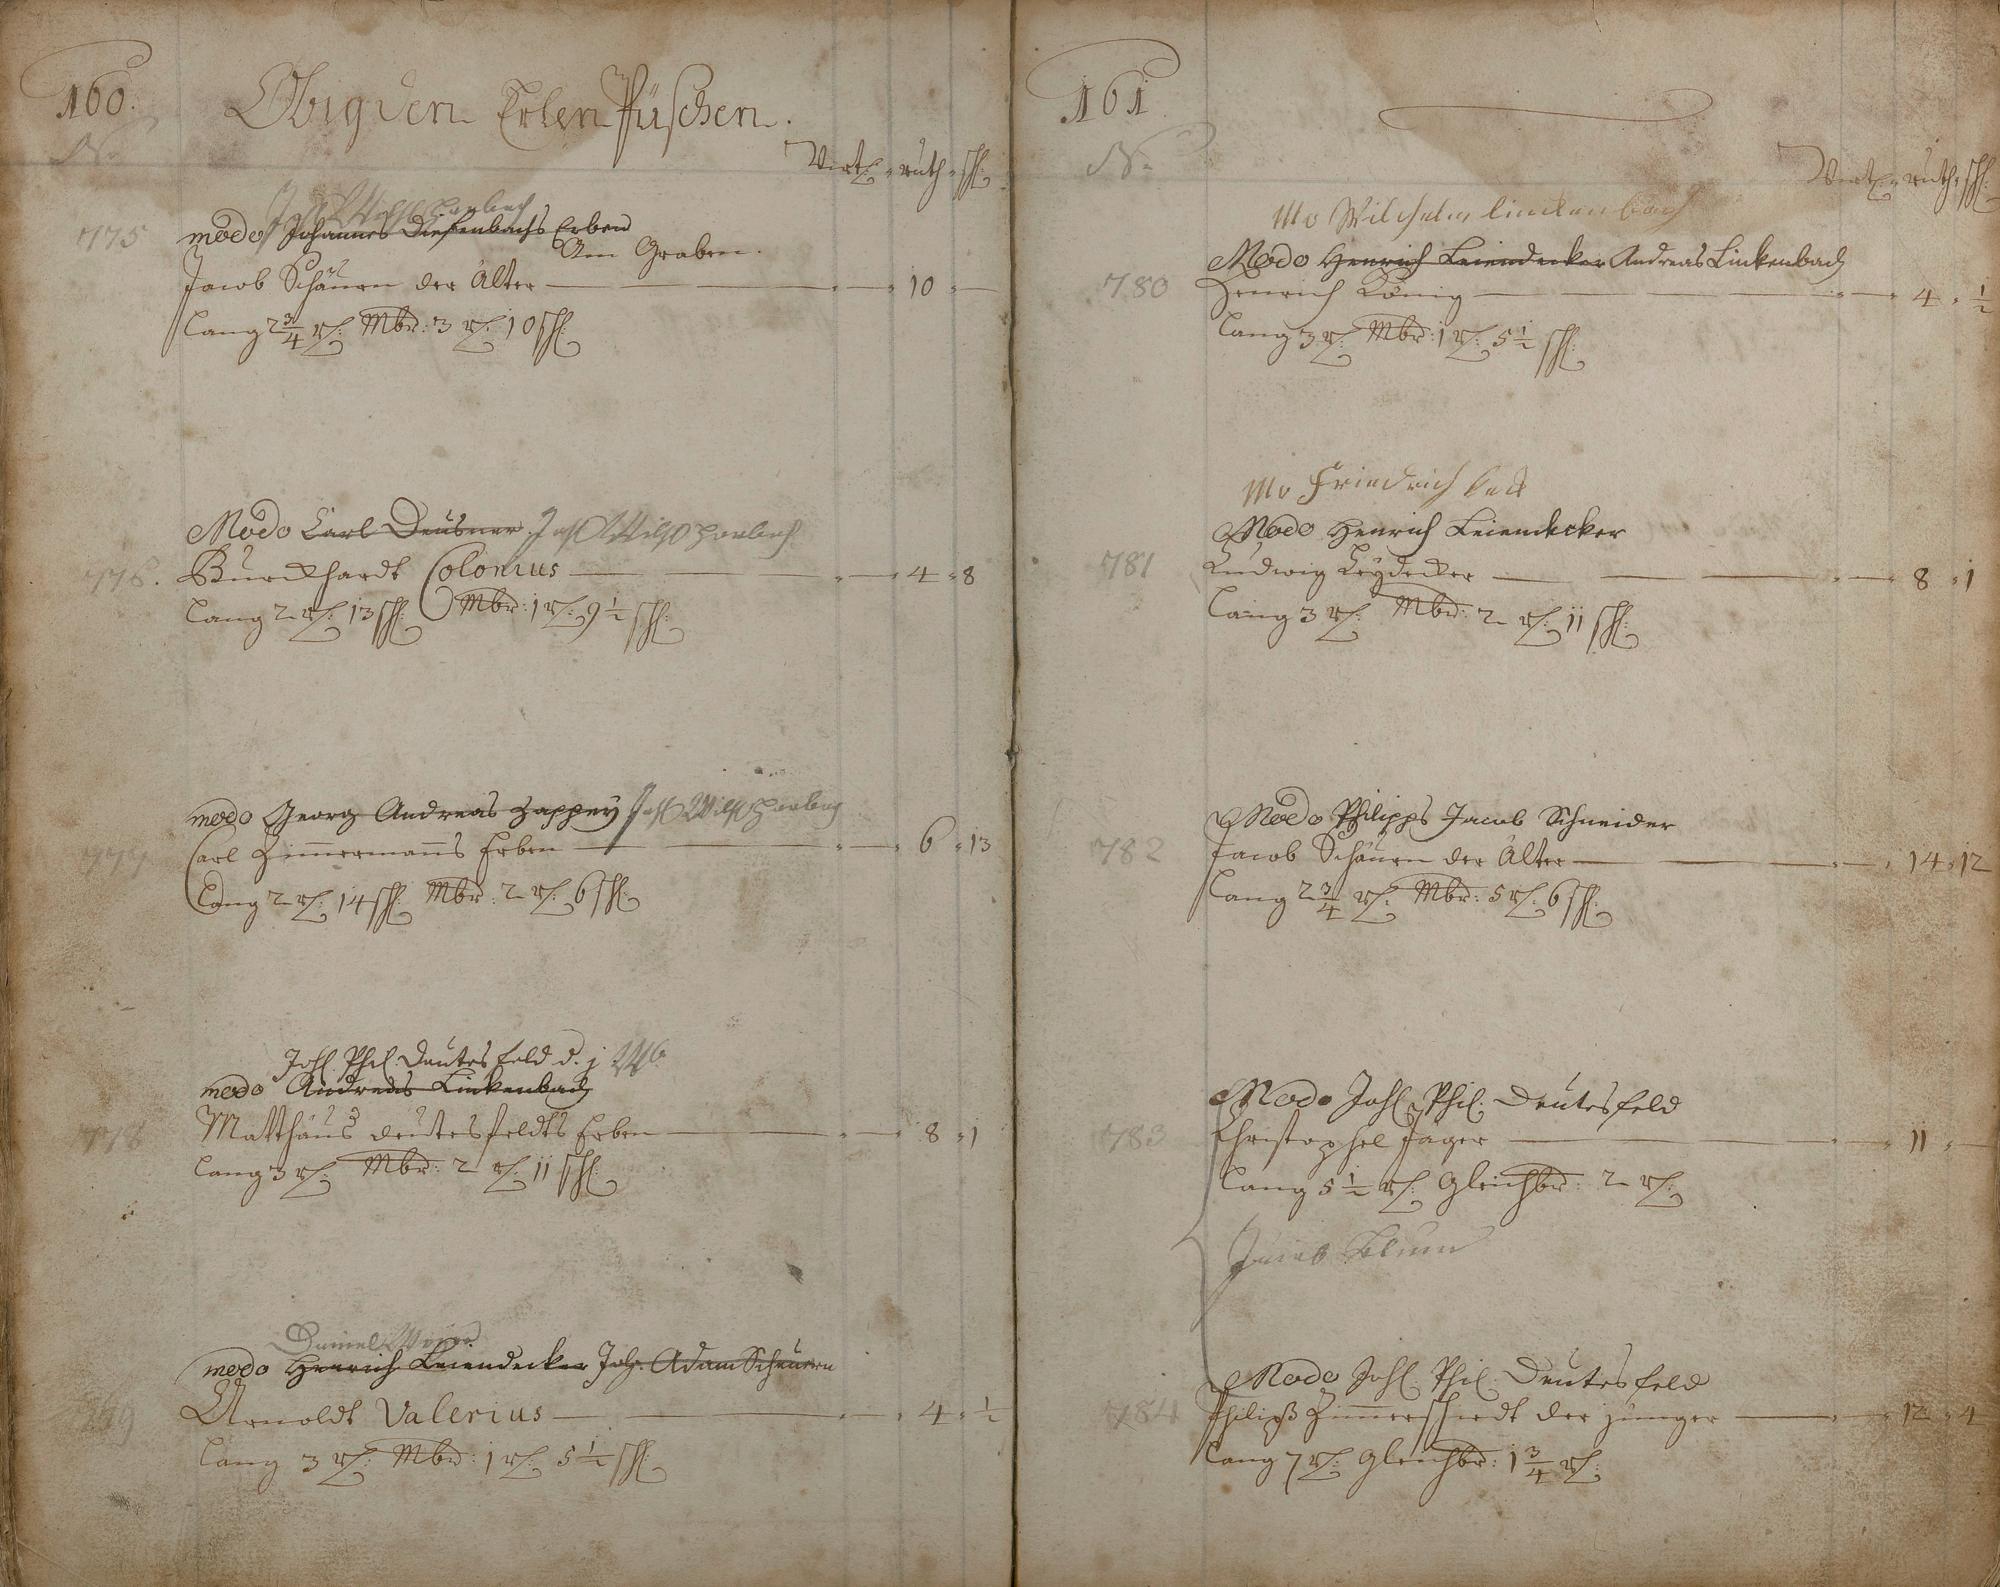 160.
Obig den Erlen Püschen.
No
Virtl: ruth. sch:
Joh Wilh Horbach
775 modo Johannes Diefenbachs Erben
Am Graben.
Jacob Schäuen der Älter — 10 —
lang 2 3/4 r: Mbr: 3 r: 10 sch:
Modo Carl Deusner Joh Wilh Horbach
776. Burckhardt Colonius — 4 " 8
lang 2 r: 13 sch: Mbr: 1 r: 9 1/2 sch:
modo Georg Andreas Happey Joh Wilh Horbach
777 Carl Zimmermanns Erben — 6 " 13
lang 2 r: 14 sch: Mbr: 2 r: 6 sch:
Joh. Phil. Deutesfeld d. j.
modo Andreas Linkenbach
778 Matthäus deutesfeldts Erben — 8 " 1
lang 3 r: Mbr: 2 r: 11 sch:
Daniel
modo Henrich Leiendecker Joh. Adam Scheuern
Arnoldt Valerius — 4 " 1/2
lang 3 r: Mbr: 1 r: 5 1/2 sch:
161
No
Virtl: ruth. sch:
Mo Wilhelm linckenbach
Modo Henrich Leiendecker Andreas Linkenbach
780 Henrich König — 4 " 1/2
lang 3 r: Mbr: 1 r: 5 1/2 sch:
Mo Friedrich
Modo Henrich Leiendecker
781 Ludwig Leydecker — 8 " 1
lang 3 r: Mbr: 2 r: 11 sch:
Modo Philipps Jacob Schneider
782 Jacob Schäuen der Älter — 14 " 12
lang 2 3/4 r: Mbr: 5 r: 6 sch:
Modo Joh. Phil. Deutesfeld
783 Christophel Jäger — 11 " —
lang 5 1/2 r: Gleichbr: 2 r:
Jacob Blum
Modo Joh. Phil. Deutesfeld
784 Philipß Zimmerschiedt der junger — 12 " 4
lang 7 r: Gleichbr: 1 3/4 r: